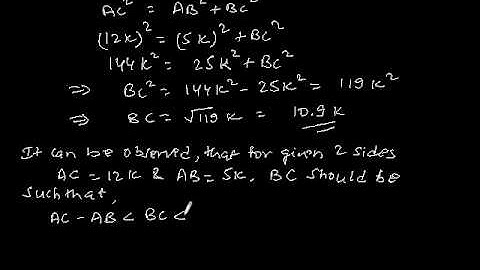 AC² = AB² + BC²
(12K)² = (5K)² + BC²
144K² = 25K² + BC²
⇒ BC² = 144K² - 25K² = 119K²
⇒ BC = √119 K = 10.9 K
It can be observed, that for given 2 sides
AC = 12K & AB = 5K, BC should be
such that,
AC - AB < BC <